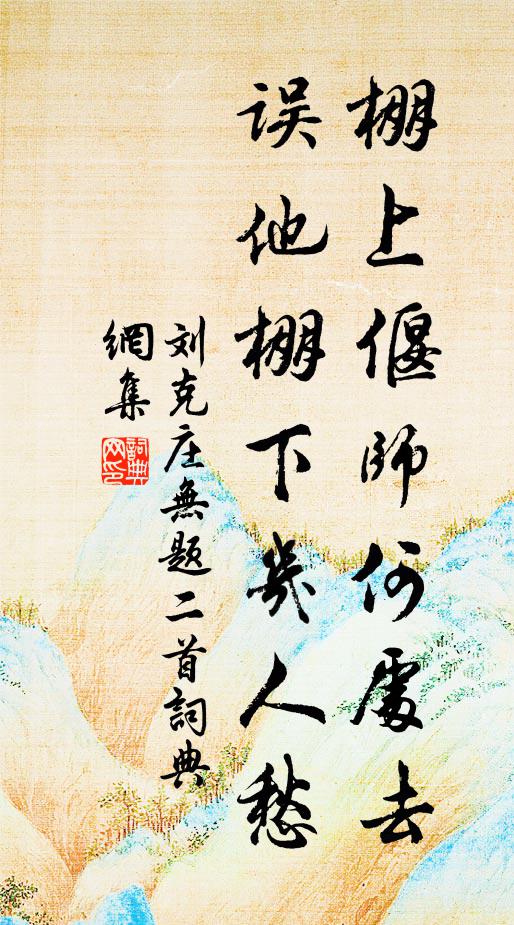 棚上偃師何處去
误他棚下几人愁
刘克庄無题二首詞典
網集
詞典
网印